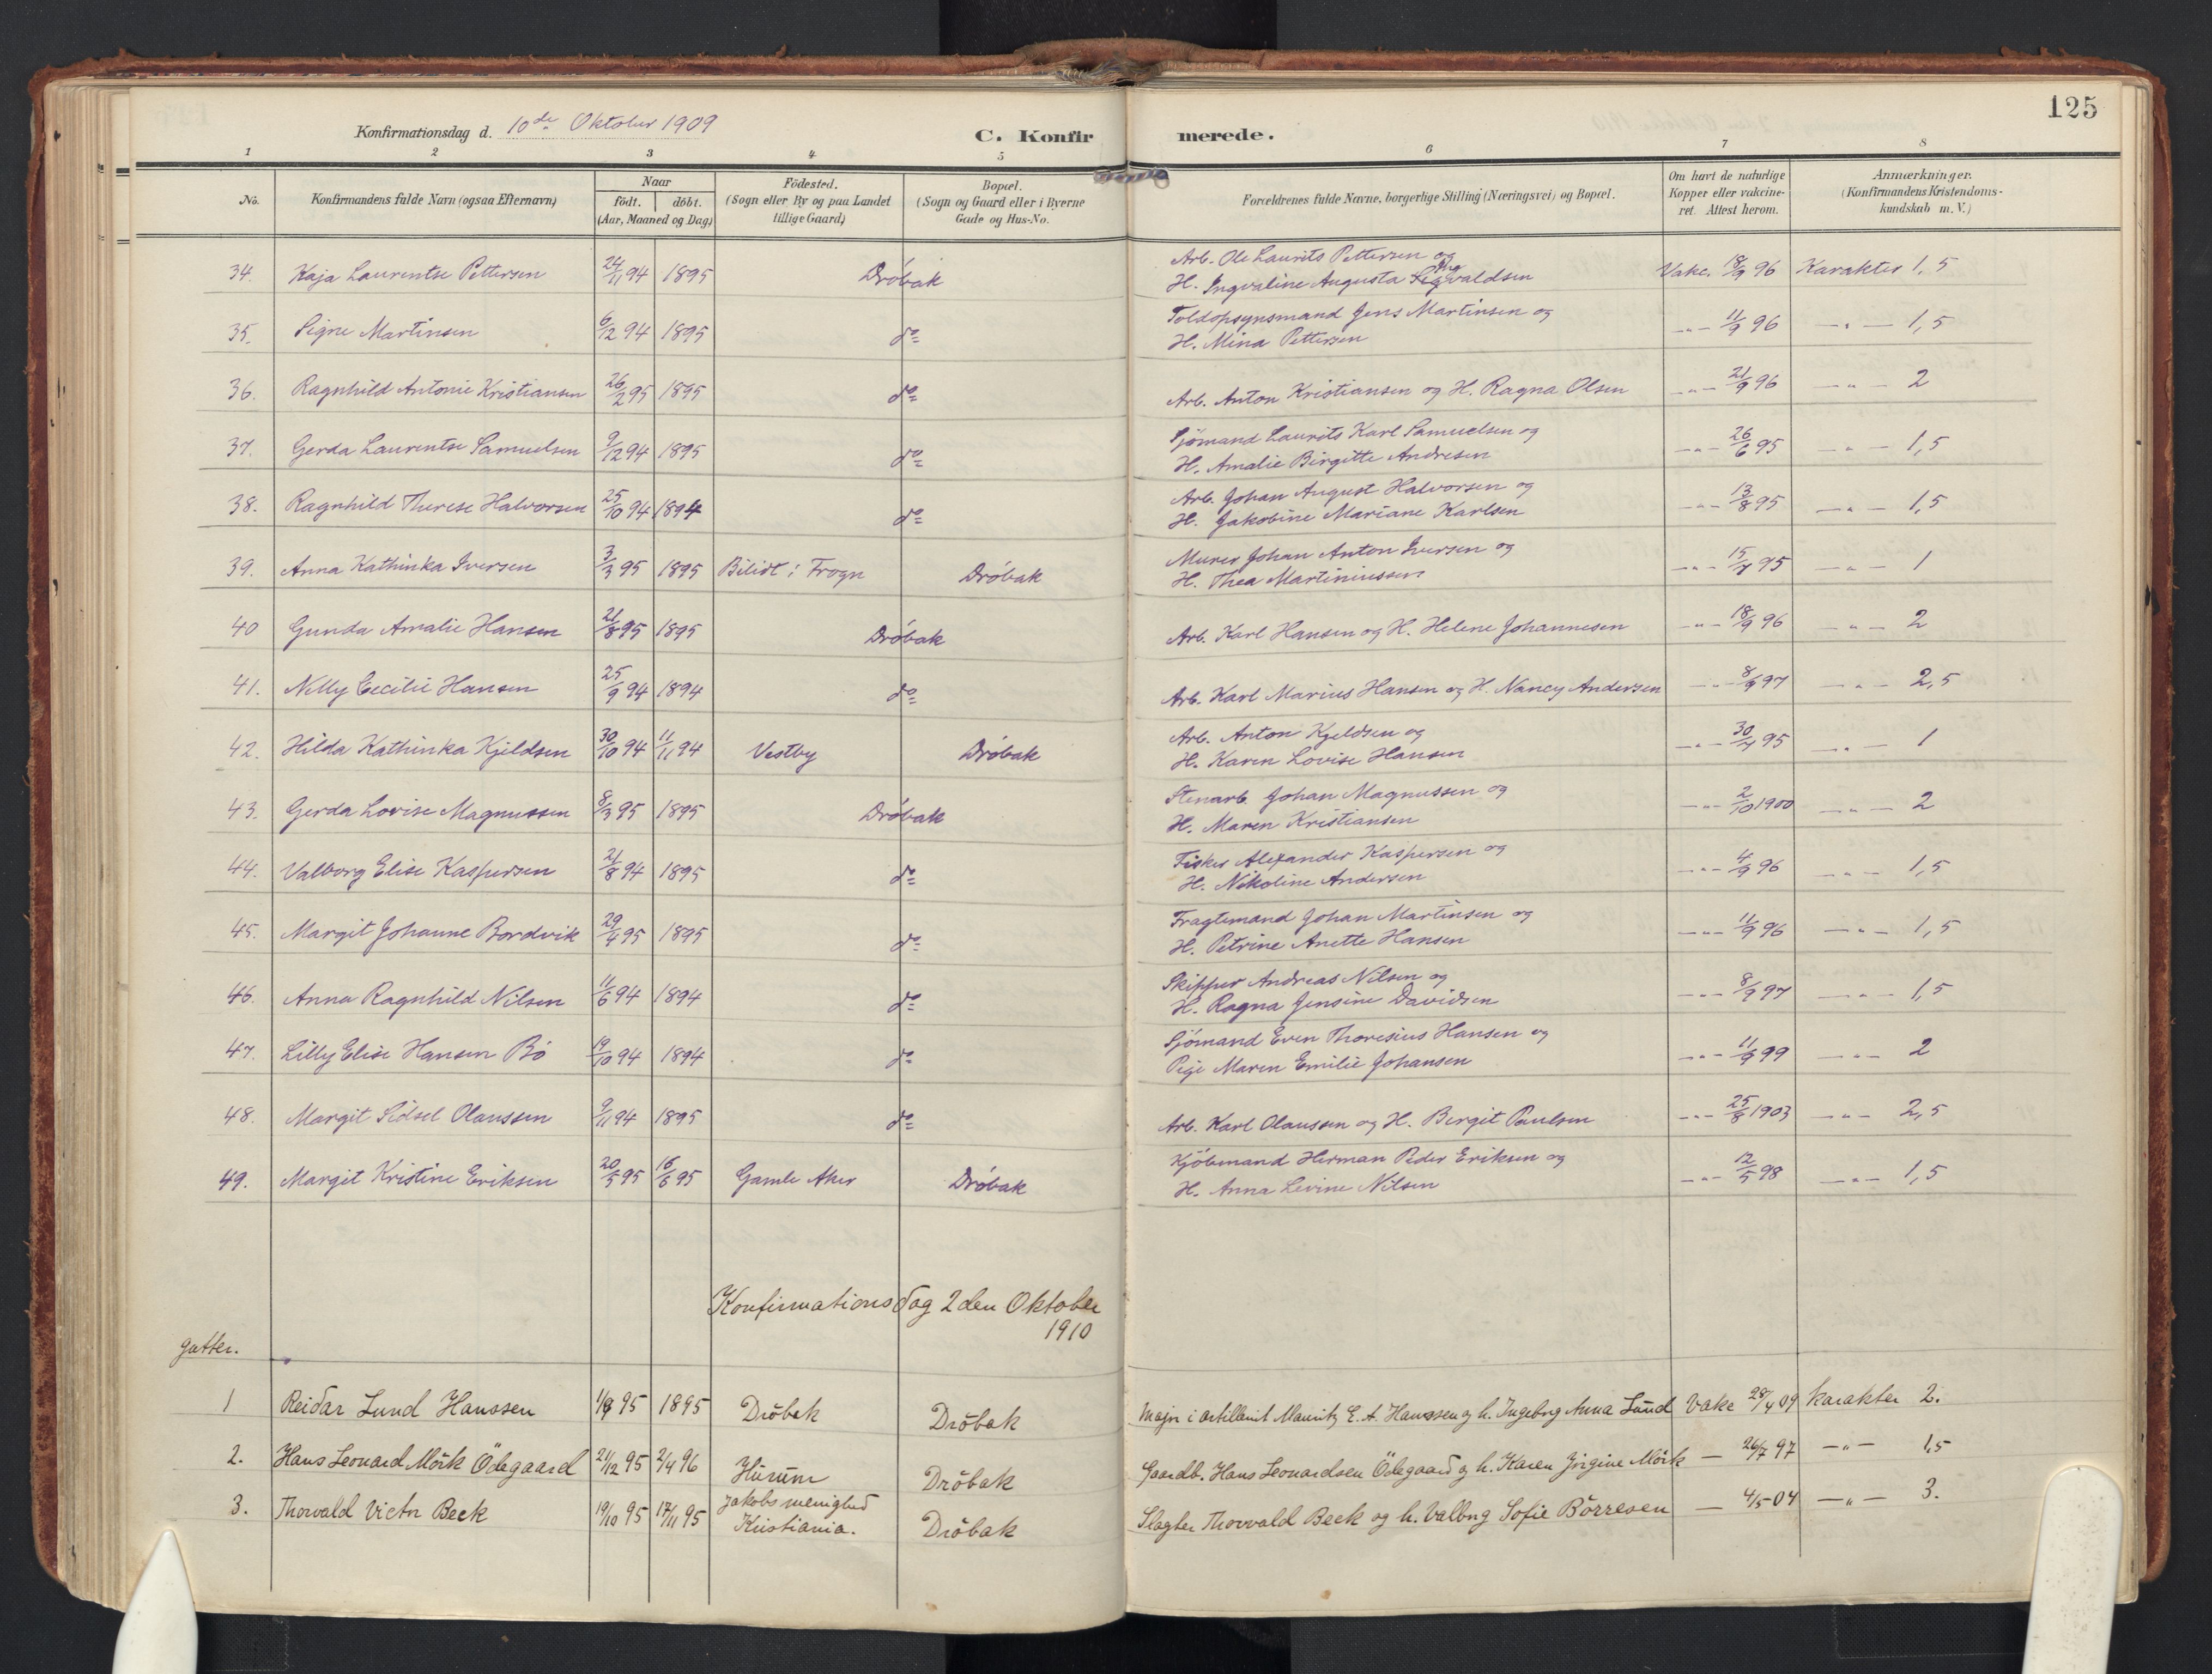 125
Konfirmationsdag d. 10de Oktober 1909
C. Konfirmerede.
1 2 3 4 5 6 7 8
No.
Konfirmandens fulde Navn (ogsaa Efternavn)
Naar
födt. | döbt.
(Aar, Maaned og Dag)
Födested.
(Sogn eller By og paa Landet
tillige Gaard)
Bopæl.
(Sogn og Gaard eller i Byerne
Gade og Hus-No.
Forældrenes fulde Navne, borgerlige Stilling (Næringsvei) og Bopæl.
Om havt de naturlige
Kopper eller vakcine-
ret. Attest herom.
Anmærkninger.
(Konfirmandens Kristendoms-
kundskab m. V.)
34. Kaja Laurentse Pettersen 24/11 94 1895 Dröbak Arb. Ole Laurits Pettersen og
H. Ingvaline Augusta Vakc. 18/9 96 Karakter 1,5
35. Signe Martinsen 6/12 94 1895 do Toldopsynsmand Jens Martinsen og
H. Mina Pettersen -"- 11/9 96 -"- 1,5
36. Ragnhild Antonie Kristiansen 26/2 95 1895 do Arb. Anton Kristiansen og H. Ragna Olsen -"- 21/9 96 -"- 2
37. Gerda Laurentse Samuelsen 9/12 94 1895 do Sjömand Laurits Karl Samuelsen og
H. Amalie Birgitte Andresen -"- 26/6 95 -"- 1,5
38. Ragnhild Therese Halvorsen 25/10 94 1894 do Arb. Johan August Halvorsen og
H. Jakobine Mariane Karlsen -"- 13/8 95 -"- 1,5
39. Anna Kathinka Iversen 3/3 95 1895 Bilidt i Frogn Dröbak Murer Johan Anton Iversen og
H. Thea Martiniussen -"- 15/7 95 -"- 1
40 Gunda Amalie Hansen 21/8 95 1895 Dröbak Arb. Karl Hansen og H. Helene Johannesen -"- 18/9 96 -"- 2
41. Nelly Cecilie Hansen 25/9 94 1894 do Arb. Karl Marius Hansen og H. Nancy Andersen -"- 8/9 97 -"- 2,5
42. Hilda Kathinka Kjeldsen 30/10 94 11/11 94 Vestby Dröbak Arb. Anton Kjeldsen og
H. Karen Lovise Hansen -"- 30/7 95 -"- 1
43. Gerda Lovise Magnussen 8/3 95 1895 Dröbak Stenarb. Johan Magnussen og
H. Maren Kristiansen -"- 2/10 1900 -"- 2
44. Valborg Elise Kaspersen 21/8 94 1895 do Fisker Alexander Kaspersen og
H. Nikoline Andersen -"- 4/9 96 -"- 1,5
45. Margit Johanne Bordvik 29/4 95 1895 do Fragtemand Johan Martinsen og
H. Petrine Anette Hansen -"- 11/9 96 -"- 1,5
46. Anna Ragnhild Nilsen 11/6 94 1894 do Skipper Andreas Nilsen og
H. Ragna Jensine Davidsen -"- 8/9 97 -"- 1,5
47. Lilly Elise Hansen Bö 19/10 94 1894 do Sjömand Even Thoresius Hansen og
Pige Maren Emilie Johansen -"- 11/9 99 -"- 2
48. Margit Sidsel Olaussen 9/11 94 1895 do Arb. Karl Olaussen og H. Bergit Paulsen -"- 25/8 1903 -"- 2,5
49. Margit Kristine Eriksen 20/5 95 16/6 95 Gamle Aker Dröbak Kjöbmand Herman Peder Eriksen og
H. Anna Levine Nilsen -"- 12/5 98 -"- 1,5
Konfirmationsdag 2den Oktober
1910
gutter.
1 Reidar Lund Hanssen 1/9 95 1895 Dröbak Dröbak Major i artilleriet Mauritz E. A. Hanssen og h. Ingeborg Anna Lund Vakc 28/4 09 karakter 2.
2. Hans Leonard Mörk Ödegaard 21/12 95 2/4 96 Hurum Dröbak Gaardb. Hans Leonardsen Ödegaard og h. Karen Jörgine Mörk — 26/7 97 -"- 1,5
3. Thorvald Victor Beck 19/10 95 17/11 95 Jakobs menighed
Kristiania. Dröbak Slagter Thorvald Beck og h. Valborg Sofie Börresen — 4/5 04 -"- 3.